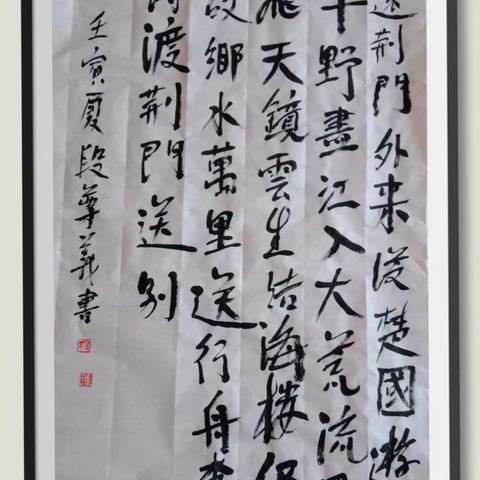 遠荆門外来從楚國遊
平野盡江入大荒流
飛天鏡雲生結海樓仍
故鄉水萬里送行舟李
渡荆門送别
壬寅夏段尊義書